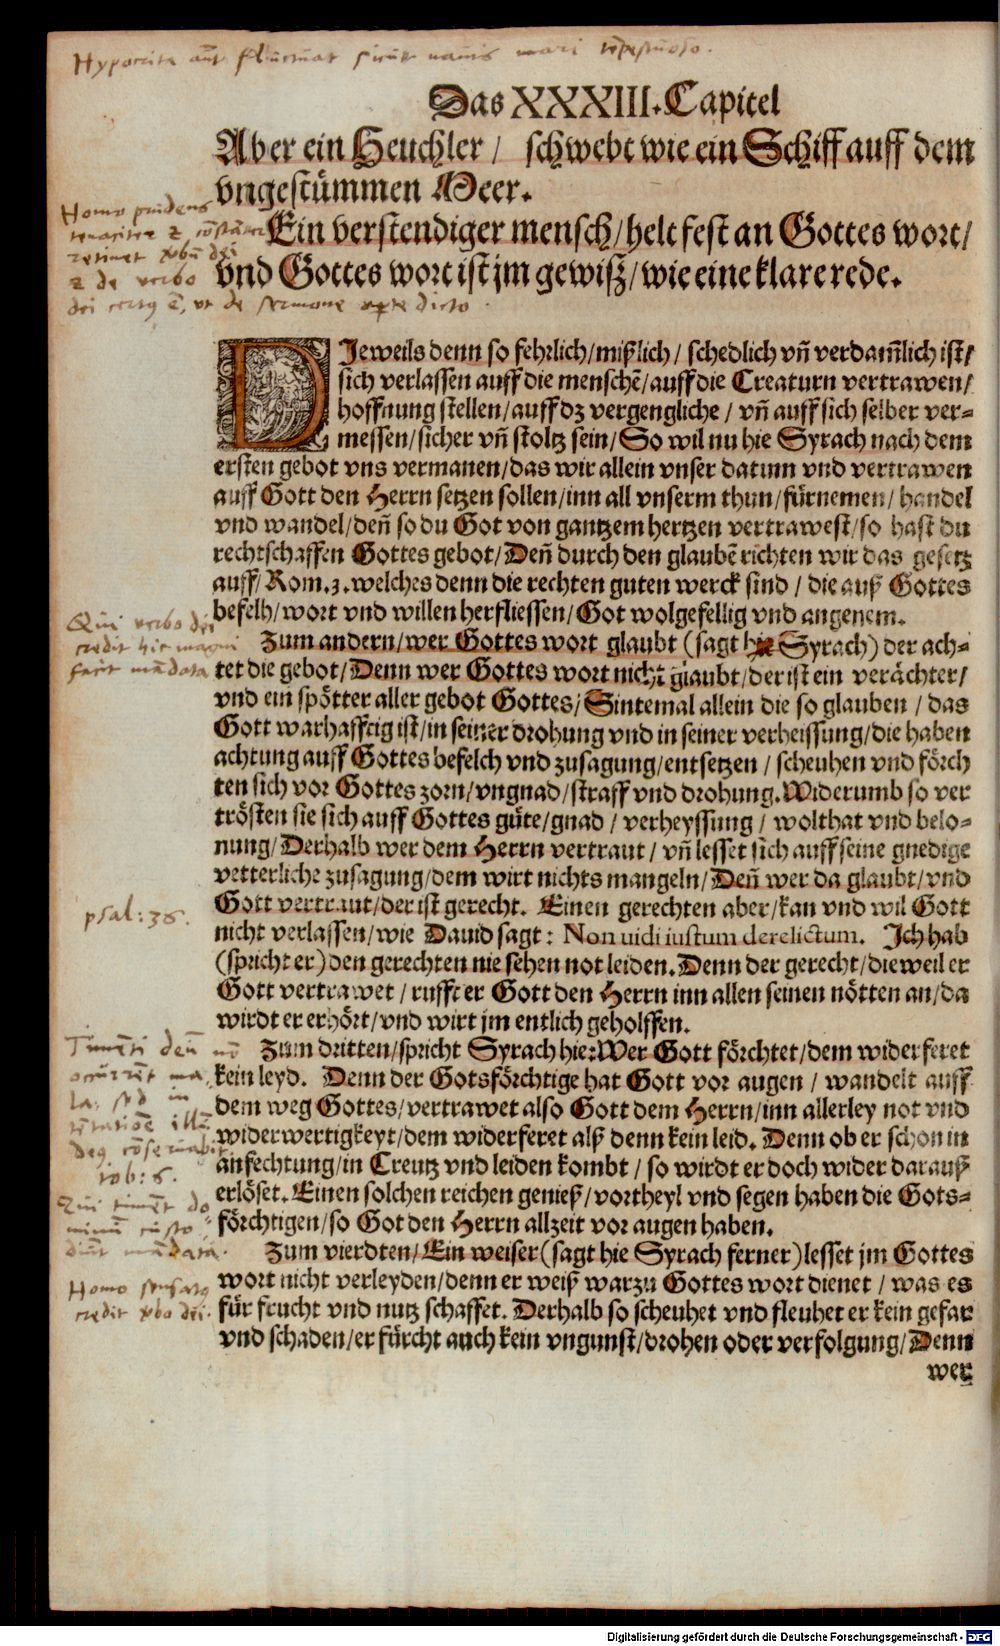 Hypocrita aut̄ fluctuat sicut navis mari tēpestuoso.
Das XXXIII. Capitel
Aber ein Heuchler / schwebt wie ein Schiff auff dem
vngestümmen Meer.
Homo prudens
tenaciter & cōstāter
retinet v̄bū dei
& de verbo
dei certus ē, ut de sermone apte dicto
Ein verstendiger mensch / helt fest an Gottes wort /
vnd Gottes wort ist jm gewisz / wie eine klare rede.
DJeweils denn so fehrlich / mißlich / schedlich vñ verdam̄lich ist /
sich verlassen auff die menschē / auff die Creaturn vertrawen /
hoffnung stellen / auff dz vergengliche / vñ auff sich selber ver-
messen / sicher vñ stoltz sein / So wil nu hie Syrach nach dem
ersten gebot vns vermanen / das wir allein vnser datum vnd vertrawen
auff Gott den Herrn setzen sollen / inn all vnserm thun / fürnemen / handel
vnd wandel / deñ so du Got von gantzem hertzen vertrawest / so hast du
rechtschaffen Gottes gebot / Deñ durch den glaubē richten wir das gesetz
auff / Rom. 3. welches denn die rechten guten werck sind / die auß Gottes
befelh / wort vnd willen herfliessen / Got wolgefellig vnd angenem.
Qui verbo dei
credit hic magni
facit mādata
Zum andern / wer Gottes wort glaubt (sagt hie Syrach) der ach-
tet die gebot / Denn wer Gottes wort nicht glaubt / der ist ein verächter /
vnd ein spötter aller gebot Gottes / Sintemal allein die so glauben / das
Gott warhafftig ist / in seiner drohung vnd in seiner verheissung / die haben
achtung auff Gottes befelch vnd zusagung / entsetzen / scheuhen vnd förch
ten sich vor Gottes zorn / vngnad / straff vnd drohung. Widerumb so ver
trösten sie sich auff Gottes güte / gnad / verheyssung / wolthat vnd belo-
nung / Derhalb wer dem Herrn vertraut / vñ lesset sich auff seine gnedige
vetterliche zusagung / dem wirt nichts mangeln / Deñ wer da glaubt / vnd
psal: 36.
Gott vertraut / der ist gerecht. Einen gerechten aber / kan vnd wil Gott
nicht verlassen / wie Dauid sagt : Non uidi iustum derelictum. Jch hab
(spricht er) den gerechten nie sehen not leiden. Denn der gerecht / dieweil er
Gott vertrawet / rufft er Gott den Herrn inn allen seinen nötten an / da
wirdt er erhört / vnd wirt jm entlich geholffen.
Timēti deū nō
occurrēt ma-
la, sed in
tētatiōe illū
deus cōservabit
iob: 6.
Zum dritten / spricht Syrach hie: Wer Gott förchtet / dem widerferet
kein leyd. Denn der Gotsförchtige hat Gott vor augen / wandelt auff
dem weg Gottes / vertrawet also Gott dem Herrn / inn allerley not vnd
widerwertigkeyt / dem widerferet alß denn kein leid. Denn ob er schon in
anfechtung / in Creutz vnd leiden kombt / so wirdt er doch wider darauß
erlöset. Einen solchen reichen genieß / vortheyl vnd segen haben die Gots-
förchtigen / so Got den Herrn allzeit vor augen haben.
Qui timēt do
minū custo
diūt mādata.
Zum vierdten / Ein weiser (sagt hie Syrach ferner) lesset jm Gottes
Homo sensatus
credit v̄bo dei.
wort nicht verleyden / denn er weiß warzu Gottes wort dienet / was es
für frucht vnd nutz schaffet. Derhalb so scheuhet vnd fleuhet er kein gefar
vnd schaden / er fürcht auch kein vngunst / drohen oder verfolgung / Denn
wer
Digitalisierung gefördert durch die Deutsche Forschungsgemeinschaft - DFG